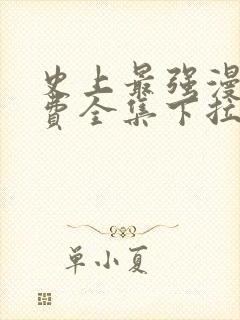 史上最强漫
费全集下拉
单小夏